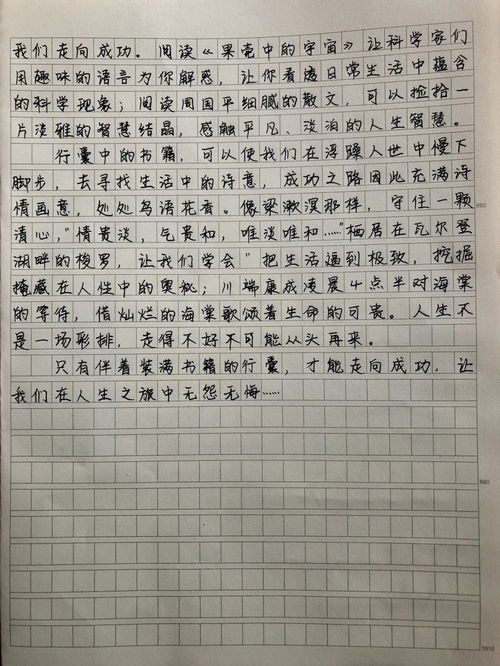 我们走向成功。阅读《果壳中的宇宙》让科学家们
用趣味的语言为你解惑，让你看透日常生活中蕴含
的科学现象；阅读周国平细腻的散文，可以捡拾一
片淡雅的智慧结晶，感触平凡、淡泊的人生智慧。
行囊中的书籍，可以使我们在浮躁人世中慢下
脚步，去寻找生活中的诗意，成功之路因此充满诗
情画意，处处鸟语花香。像梁漱溟那样，守住一颗
清心，“情贵淡，气贵和，唯淡唯和……”栖居在瓦尔登
湖畔的梭罗，让我们学会“把生活逼到极致，挖掘
掩藏在人性中的奥秘；川端康成凌晨4点半对海棠
的等待，借灿烂的海棠歌颂着生命的可贵。人生不
是一场彩排，走得不好不可能从头再来。
只有伴着装满书籍的行囊，才能走向成功，让
我们在人生之旅中无怨无悔……
880